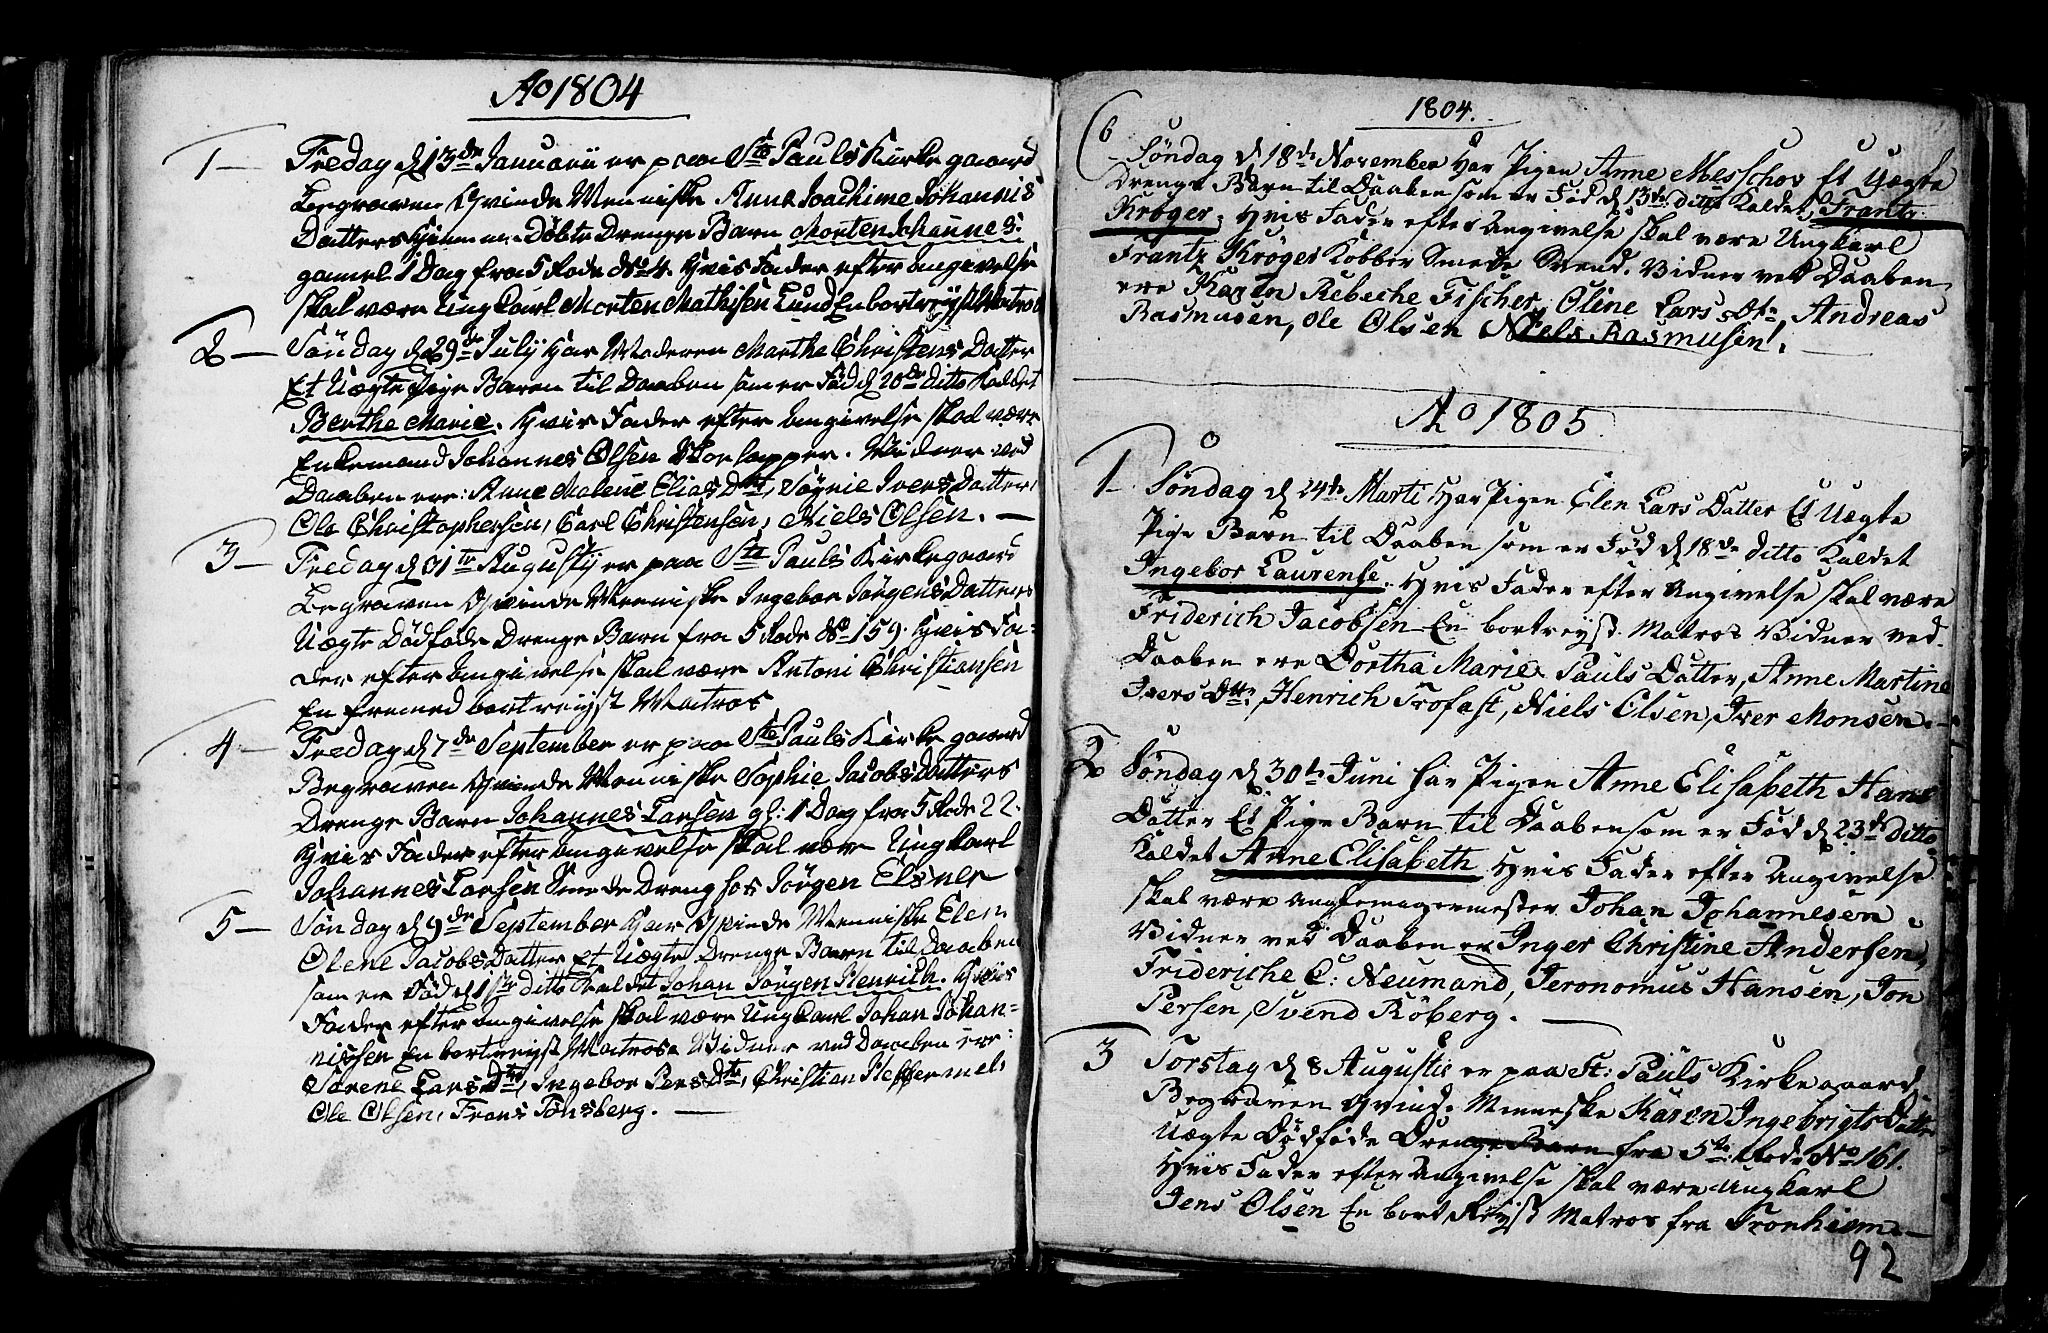 Ao 1804
1 — Fredag d 13de Januarii er paa Ste Pauls Kirke gaard
Begraven Qvinde Menniske Anne Joachime Johannis
Datters Hiemme Døbte Drenge Barn Morten Johannes.
gamel 1 Dag fra 5 Rode No 4. Hvis Fader efter Angivelse
skal være Ung karl Morten Mathisen Lund En bortreyst Matros
2 — Søndag d 29de July har Moderen Marthe Christens Datter
Et Uægte Pige Barn til Daaben som er Fød d 20de ditto Kaldet
Berthe Marie. Hvis Fader efter Angivelse skal være
Enkemand Johannes Olsen Skoe lapper. Vidner ved
Daaben ere: Anne Malene Elias Dtr, Søgnie Ivers Datter,
Ole Christophersen, Carl Christensen, Niels Olsen. —
3 — Fredag d 31te Augustij er paa Ste Pauls Kirkegaard
Begraven Qvinde Menniske Ingebor Jørgens Datters
Uægte Dødføde Drenge Barn fra 5 Rode No 159. Hvis Fa-
der efter Angivelse skal være Antoni Christiansen
En fremed bortreyst Matros
4 — Fredag d 7de September er paa Ste Pauls Kirke gaard
Begraven Qvinde Menniske Sophie Jacobs Datters
Drenge Barn Johannes Larsen gl: 1 Dag fra 5 Rode 22.
Hvis Fader efter Angivelse skal være Ungkarl
Johannes Larsen Smede Dreng hos Jørgen Elsner
5 — Søndag d 9de September har Qvinde Menniske Elen
Olene Jacobs Datter Et Uægte Drenge Barn til Daaben
som er Fød d 1ste ditto Kaldet Johan Jørgen Henrich. Hvis
Fader efter Angivelse skal være Ungkarl Johan Johan-
nissen En bortreyst Matros. Vidner ved Daaben ere:
Sørene Lars Dtr, Ingebor Pers Dtr, Christian Heffermel,
Ole Olsen, Frans Tønsberg. —
1804.
6 Søndag d 18de November Har Pigen Anne Messchov Et Uægte
Drenge Barn til Daaben som er Fød d 13de ditto Kaldet, Frantz
Krøger, Hvis Fader efter Angivelse skal være Ungkarl
Frantz Krøger Kobber Smede Svend. Vidner ved Daaben
ere Karen Rebeche Fischer, Oline Lars Dtr, Andreas
Rasmusen, Ole Olsen Niels Rasmusen. —
Ao 1805.
1 — Søndag d 24de Marti Har Pigen Elen Lars Datter Et Uægte
Pige Barn til Daaben som er Fød d 18de ditto Kaldet
Ingebor Laurense. Hvis Fader efter Angivelse skal være
Friderich Jacobsen En bortreyst Matros Vidner ved
Daaben ere Dortha Marie Pauls Datter, Anne Martine
Ivers Dtr, Henrich Trofast, Niels Olsen, Iver Monsen. —
2 Søndag d 30te Juni har Pigen Anne Elisabeth Hans
Datter Et Pige Barn til Daaben som er Fød d 23de ditto
Kaldet Anne Elisabeth Hvis Fader efter Angivelse
skal være Johan Johannesen
Vidner ved Daaben er Inger Christine Andersen,
Frideriche C: Neumand, Jeronomus Hansen, Jon
Persen, Svend Røberg. —
3 Torstag d 8 Augusti er paa St: Pauls Kirke gaard
Begraven Qvind. Menniske Karen Ingebrigts Datter
Uægte Dødføde Drenge Barn fra 5te Rode No 161.
Hvis Fader efter Angivelse skal være Ungkarl
Jens Olsen En bort Reyst Matros fra Tronhiem. —
92